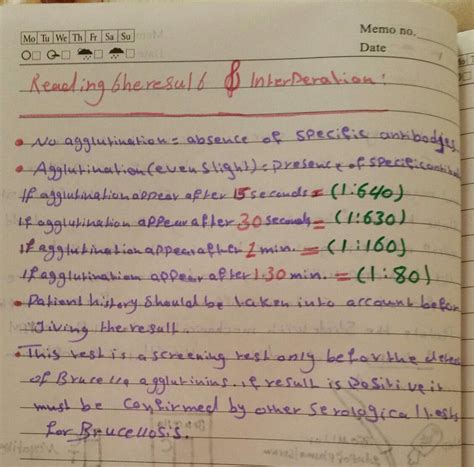 Memo no.
Mo Tu We Th Fr Sa Su
Date
Reading theresult & InterPeration:
• No agglutination = absence of specific antibodges
• Agglutination (even slight) = presence of specific
If agglutination appear after 15 seconds = (1:640)
if agglutination appear after 30 seconds = (1:630)
If agglutination appear after 1 min. = (1:160)
if agglutination appear after 1.30 min. = (1:80)
• Patient history should be taken into account befor
giving the result.
• This test is a screening test only befor the
of Brucella agglutinins. if result is Positive it
must be confirmed by other serological tests
for Brucellosis.